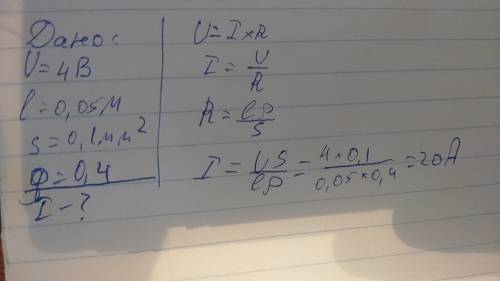 Дано:
U=4В
l=0,05м
s=0,1мм²
ρ=0,4
I-?
U=I×R
I=U/R
R=lρ/s
I=US/lρ=4×0,1/0,05×0,4=20А